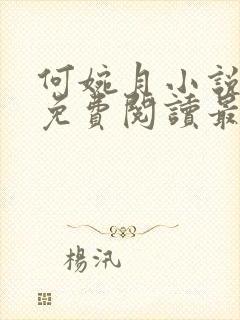 何婉月小說
免費閱讀最
楊汛